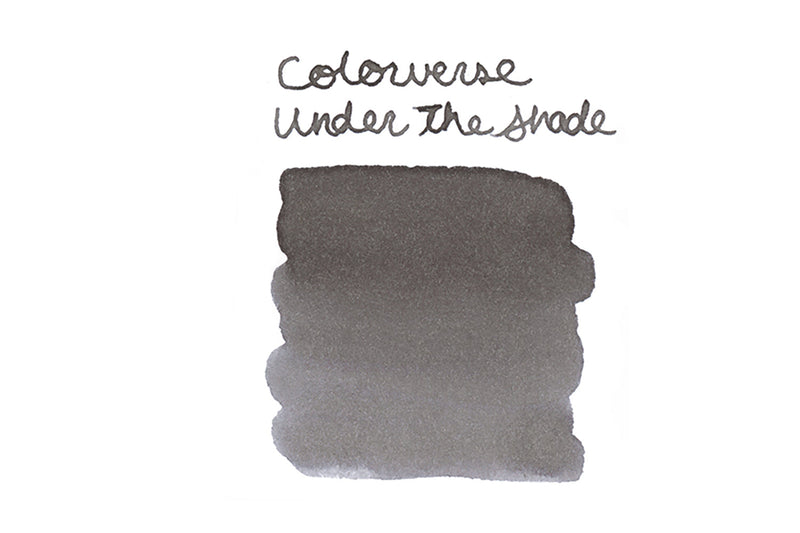 Colorverse
Under The Shade